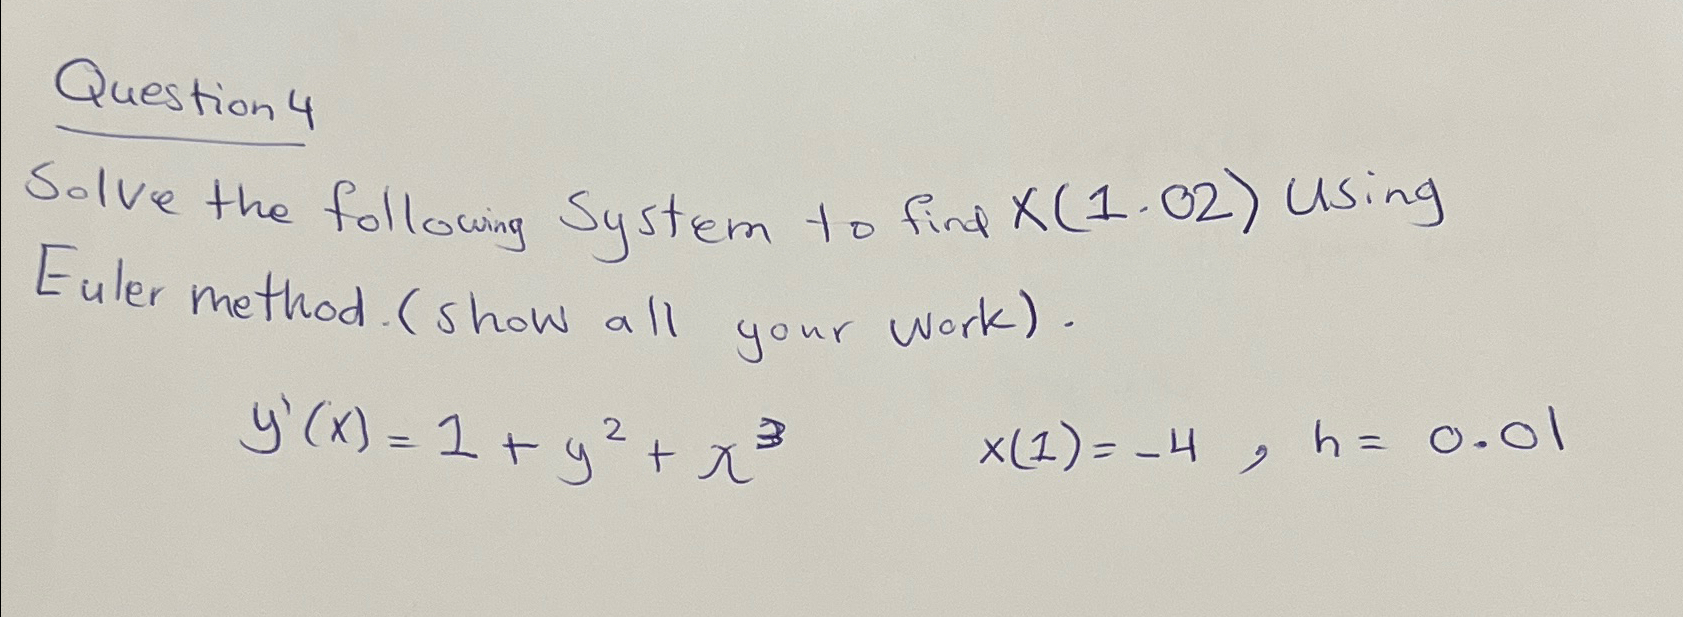 Question 4
Solve the following System to find X(1.02) Using
Euler method. (show all your work).
y'(x) = 1 + y² + x³ x(1) = -4 , h = 0.01